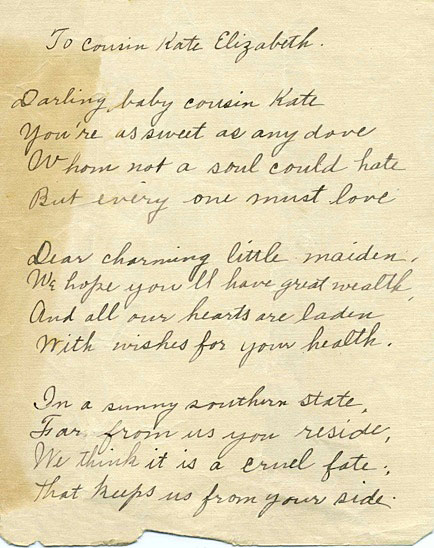 To cousin Kate Elizabeth.
Darling baby cousin Kate
You're as sweet as any dove
Whom not a soul could hate
But every one must love
Dear charming little maiden,
We hope you'll have great wealth,
And all our hearts are laden
With wishes for your health.
In a sunny southern state,
Far from us you reside,
We think it is a cruel fate,
That keeps us from your side.